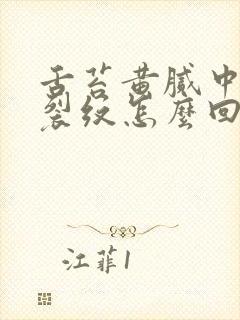 舌苔黄腻中
裂纹怎麽回
江菲1